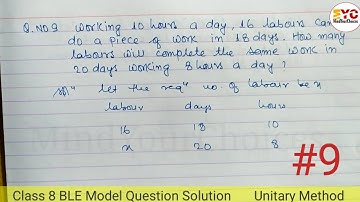 Q.NO.9 Working 10 hours a day, 16 labours can
do a piece of work in 18 days. How many
labours will complete the same work in
20 days working 8 hours a day?
Solⁿ let the reqᵈ no. of labour be x
labour days hours
16 18 10
x 20 8
#9
Class 8 BLE Model Question Solution Unitary Method